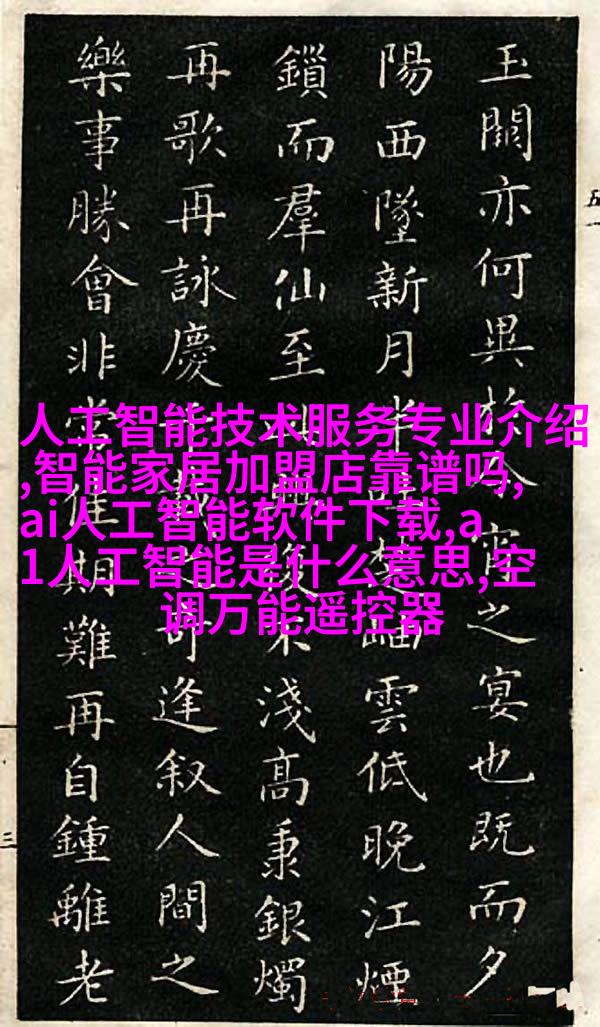 玉闕亦何異於今宵之宴也既而夕
陽西墜新月半暉楚岫雲低晚江煙
鎖而羣仙至 復不淺高秉銀燭
再歌再詠慶千載之奇逢叙人間之
樂事勝會非常佳期難再自鍾離老
人工智能技术服务专业介绍
,智能家居加盟店靠谱吗,
ai人工智能软件下载,a
1人工智能是什么意思,空
调万能遥控器
五一
三